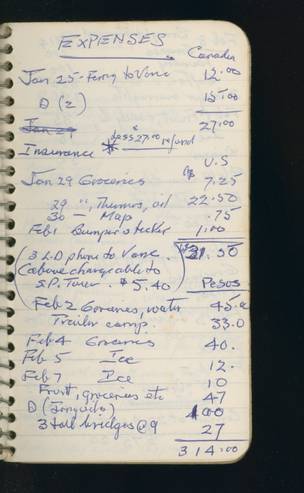 EXPENSES
Canada
Jan 25 - Ferry to Vanc 12.00
D (2) 15.00
Jan 29 27.00
Insurance * Less $27.00 refund
U.S
Jan 29 Groceries 7.25
29 ", Thermos, oil 22.50
30 - Map .75
Feb 1 Bumper sticker 1.00
31.50
(3 L.D phone to Vanc.
above chargeable to
S.P. Tower. $5.40)
Pesos
Feb 2 Groceries, water 45.
Trailer camp. 33.0
Feb 4 Groceries 40.
Feb 5 Ice 12.
Feb 7 Ice 10
Fruit, groceries etc 47
D 100
3 toll bridges @ 9 27
314.00